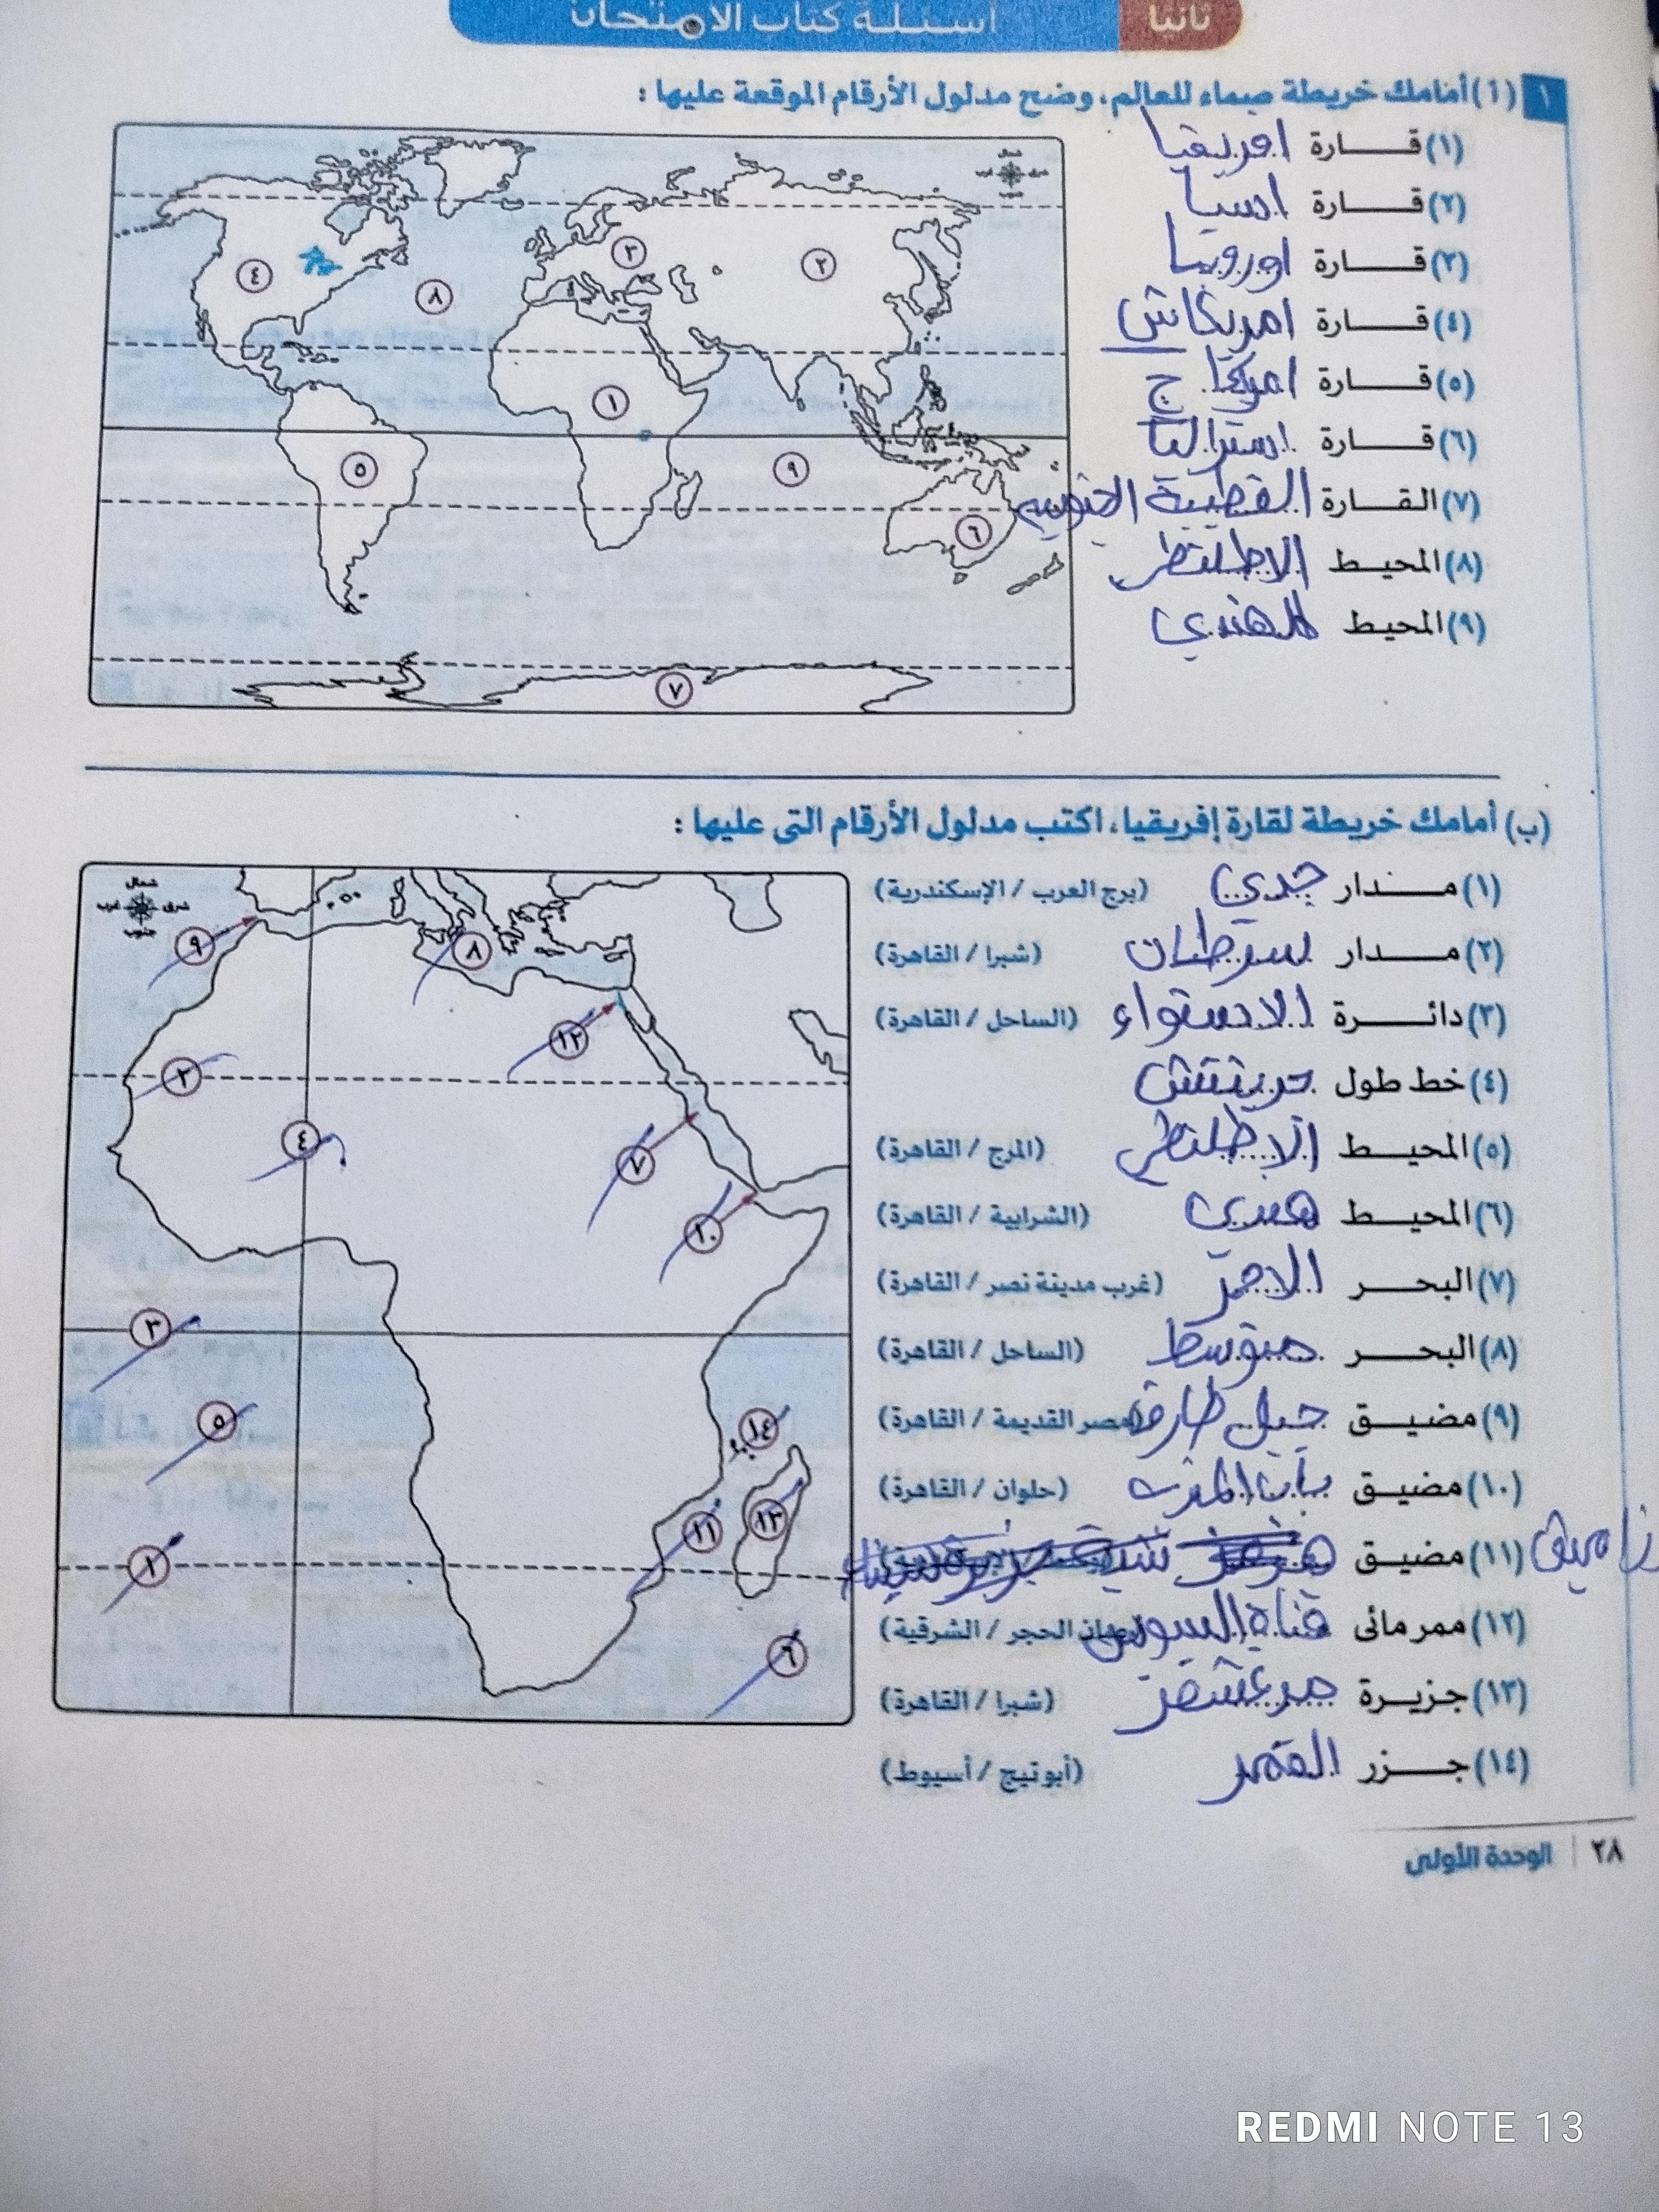 ثانيًا أسئلة كتاب الامتحان
١ (أ) أمامك خريطة صماء للعالم، وضح مدلول الأرقام الموقعة عليها :
(١) قــارة افريقيا
(٢) قــارة اسيا
(٣) قــارة اوروبا
(٤) قــارة امريكا ش
(٥) قــارة امريكا ج
(٦) قــارة استراليا
(٧) القــارة القطبية الجنوبيه
(٨) المحيــط الاطلنطى
(٩) المحيــط الهندي
شمال
شرق غرب
جنوب
٤
٨
٣
٢
١
٥
٩
٦
٧
(ب) أمامك خريطة لقارة إفريقيا، اكتب مدلول الأرقام التى عليها :
(١) مــدار جدي (برج العرب / الإسكندرية)
(٢) مــدار سرطان (شبرا / القاهرة)
(٣) دائــرة الاستواء (الساحل / القاهرة)
(٤) خط طول جرينتش
(٥) المحيــط الاطلنطى (المرج / القاهرة)
(٦) المحيــط هندي (الشرابية / القاهرة)
(٧) البحــر الاحمر (غرب مدينة نصر / القاهرة)
(٨) البحــر متوسط (الساحل / القاهرة)
(٩) مضيــق جبل طارق (مصر القديمة / القاهرة)
(١٠) مضيــق باب المندب (حلوان / القاهرة)
(١١) مضيــق
(١٢) ممر مائى قناة السويس الحجر / الشرقية)
(١٣) جزيــرة مدغشقر (شبرا / القاهرة)
(١٤) جــزر القمر (أبوتيج / أسيوط)
شمال
شرق غرب
جنوب
٩
٨
١٢
٢
٤
٧
١٠
٣
٥
١٤
١١
١٣
١
٦
٢٨ | الوحدة الأولى
REDMI NOTE 13